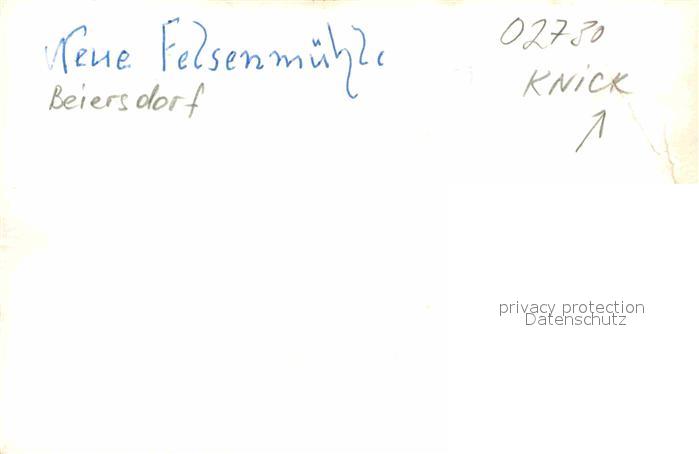 Neue Felsenmühle
Beiersdorf
02730
KNiCK
privacy protection
Datenschutz